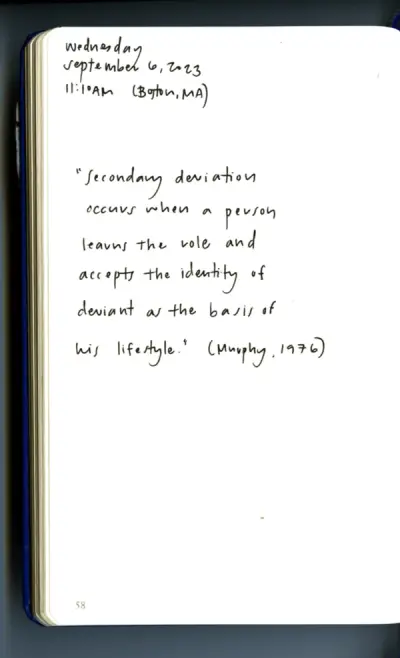 Wednesday
September 6, 2023
11:10AM (Boston, MA)
"Secondary deviation
occurs when a person
learns the role and
accepts the identity of
deviant as the basis of
his lifestyle." (Murphy, 1976)
58